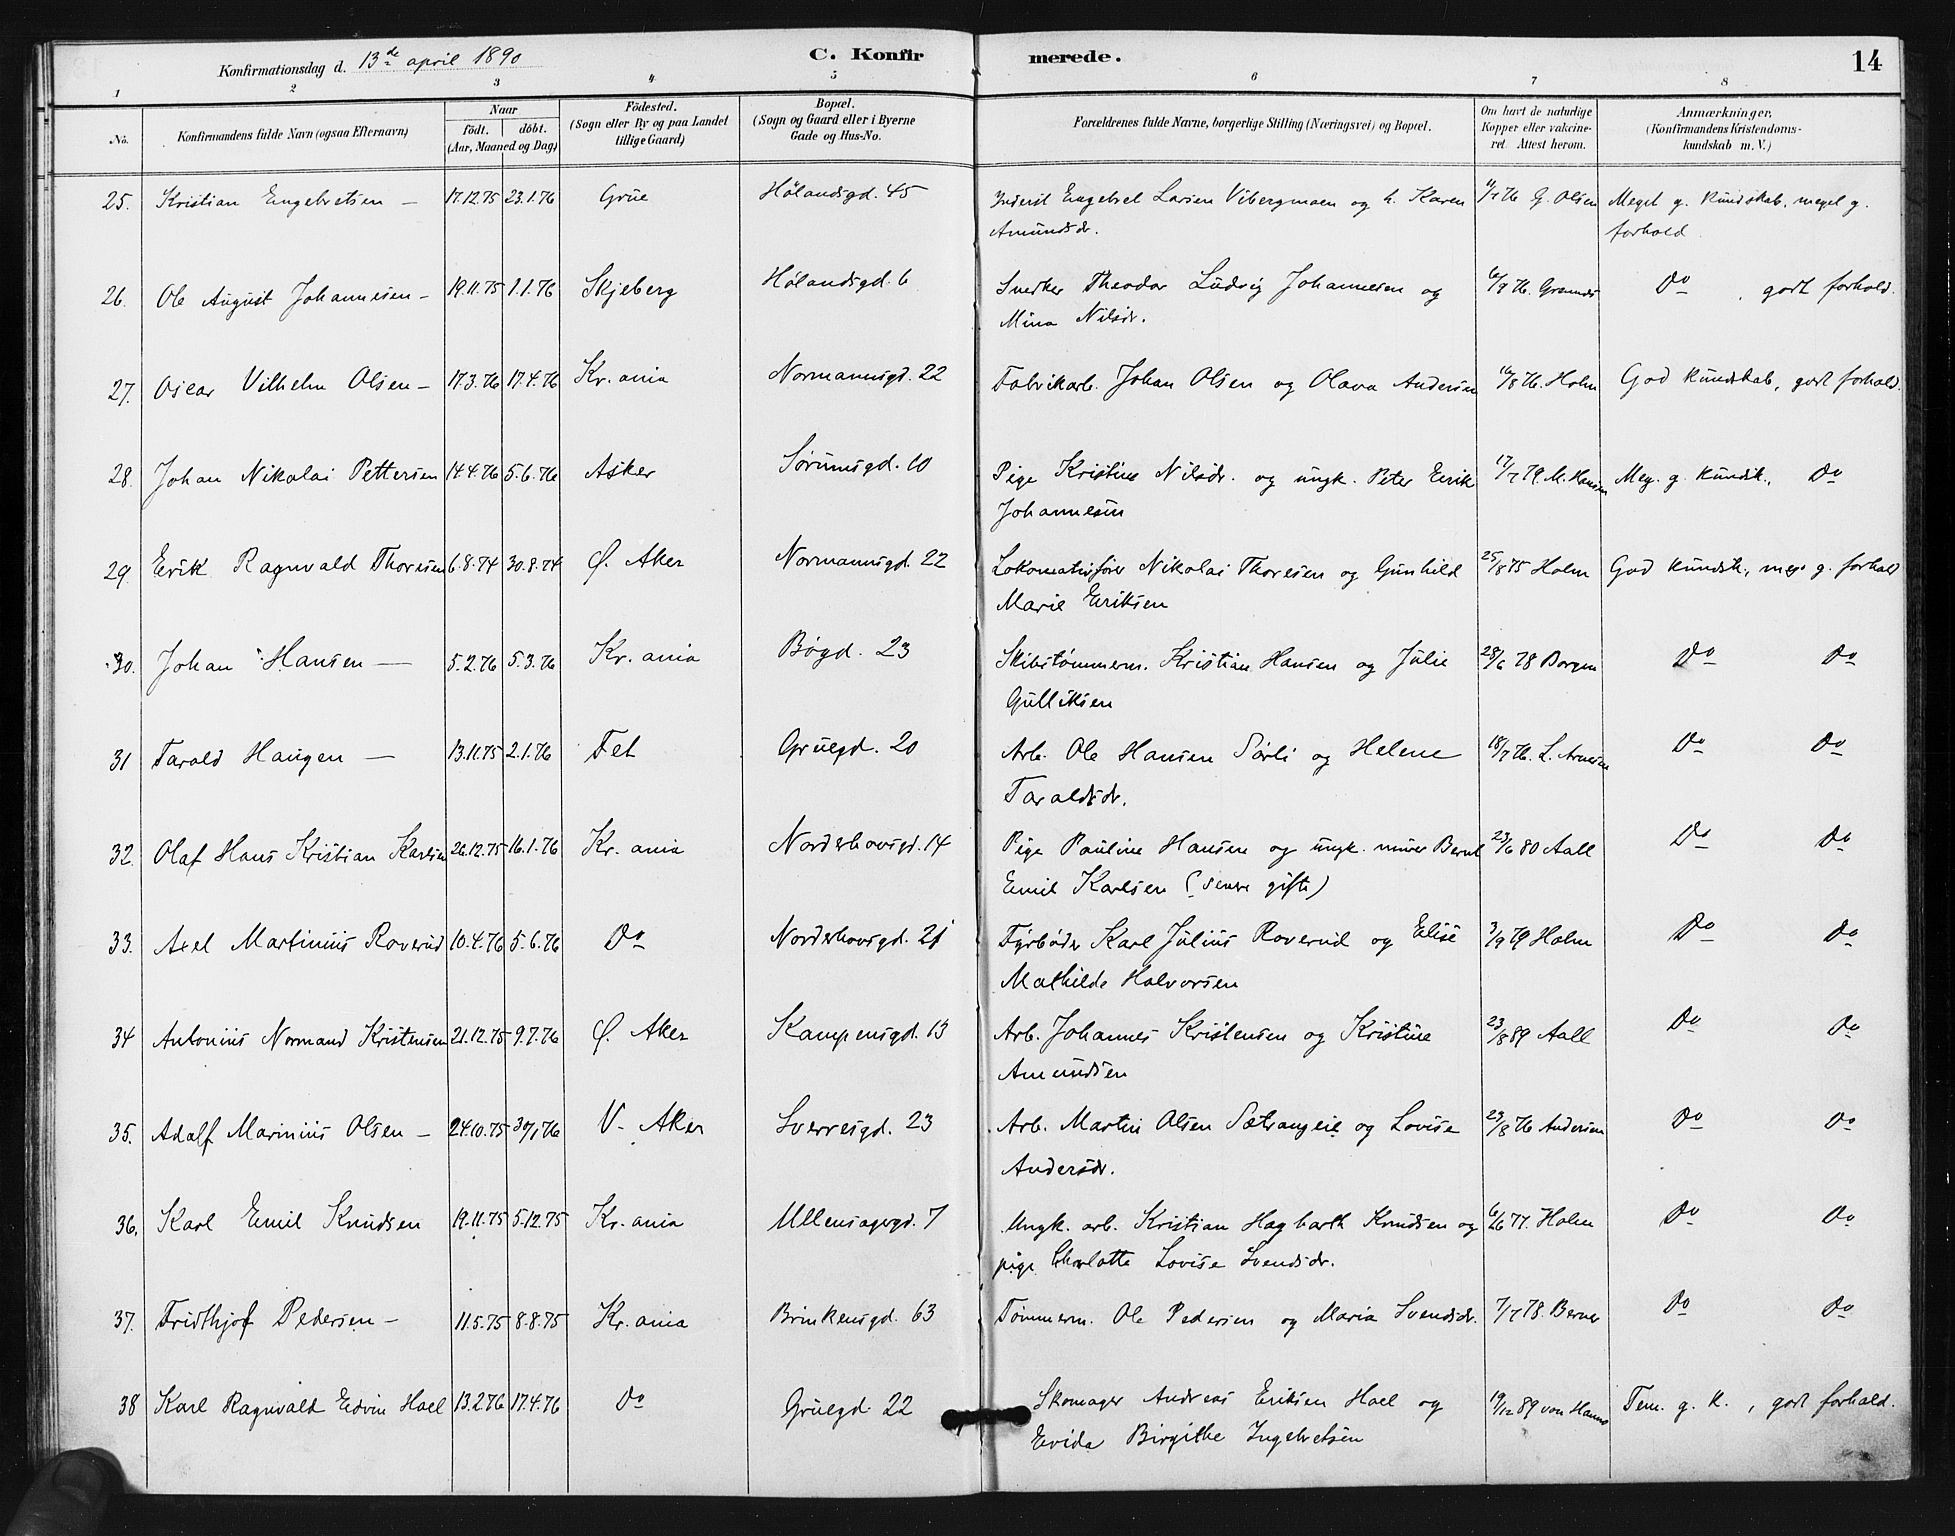 Konfirmationsdag d. 13de april 1890 C. Konfir merede. 14
1 2 3 4 5 6 7 8
No. Konfirmandens fulde Navn (ogsaa Efternavn) Naar födt. döbt. (Aar, Maaned og Dag) Födested. (Sogn eller By og paa Landet tillige Gaard) Bopæl. (Sogn og Gaard eller i Byerne Gade og Hus-No. Forældrenes fulde Navne, borgerlige Stilling (Næringsvei) og Bopæl. Om havt de naturlige Kopper eller vakcineret. Attest herom. Anmærkninger. (Konfirmandens Kristendomskundskab m. V.)
25. Kristian Engebretsen — 17.12.75 23.1.76 Grue Hølandsgd. 45 Inderst Engebret Larsen Vibergmoen og h. Karen 11/7 76 G. Olsen Meget g. kundskab, meget g.
Amundsdr. forhold
26. Ole August Johannesen — 19.11.75 1.1.76 Skjeberg Hølandsgd. 6 Snedker Theodor Ludvig Johannesen og Do, godt forhold.
Mina Nilsdr.
27. Oscar Vilhelm Olsen — 17.3.76 17.4.76 Kr.ania Normannsgd. 22 Fabrikarb. Johan Olsen og Olava Andersen 16/8 76. Holm God kundskab, godt forhold.
28. Johan Nikolai Pettersen 14.4.76 5.6.76 Asker Sørumsgd. 10 Pige Kristine Nilsdr. og ungk. Peter Eirik 17/7 79 M. Hansen Meg. g. kundsk., Do
Johannesen
29. Erik Ragnvald Thoresen 6.8.74 30.8.74 Ø. Aker Normannsgd. 22 Lokomotivfører Nikolai Thoresen og Gunhild 25/8 75 Holm God kundsk., meg. g. forhold
Marie Eriksen
30. Johan Hansen — 5.2.76 5.3.76 Kr.ania Bøgd. 23 Skibstømmerm. Kristian Hansen og Julie 28/6 78 Borgen Do Do
Gulliksen
31 Tarald Haugen — 13.11.75 2.1.76 Fet Gruegd. 20 Arb. Ole Hansen Sørli og Helene 18/7 76. L. Arnesen Do Do
Taraldsdr.
32. Olaf Hans Kristian Karlsen 26.12.75 16.1.76 Kr.ania Norderhovsgd. 14 Pige Pauline Hansen og ungk. murer Bernt 23/6 80 Aall Do Do
Emil Karlsen (senere gifte)
33. Axel Martinius Roverud 10.4.76 5.6.76 Do Norderhovsgd. 21 Fyrbøder Karl Julius Roverud og Elise 3/9 79 Holm Do Do
Mathilde Halvorsen
34 Antonius Normand Kristensen 21.12.75 9.7.76 Ø. Aker Kampensgd. 13 Arb. Johannes Kristensen og Kristine 23/8 89 Aall Do Do
Amundsen
35. Adolf Marinius Olsen — 24.10.75 30/1 76 V. Aker Sverresgd. 23 Arb. Martin Olsen Sætrangeie og Lovise 23/8 76 Andersen Do Do
Andersdr.
36. Karl Emil Knudsen 19.11.75 5.12.75 Kr.ania Ullensagergd. 7 Ungk. arb. Kristian Hagbarth Knudsen og 6/6 77. Holm Do Do
pige Charlotte Lovise Svendsdr.
37. Fridthjof Pedersen — 11.5.75 8.8.75 Kr.ania Brinkensgd. 63 Tømmerm. Ole Pedersen og Maria Svendsdr. 7/7 78. Berner Do Do
38 Karl Ragnvald Edvin Hoel 13.2.76 17.4.76 Do Gruegd. 22 Skomager Andreas Eriksen Hoel og 19/12 89 von Hanno Tem. g. k., godt forhold.
Evida Birgithe Ingebretsen